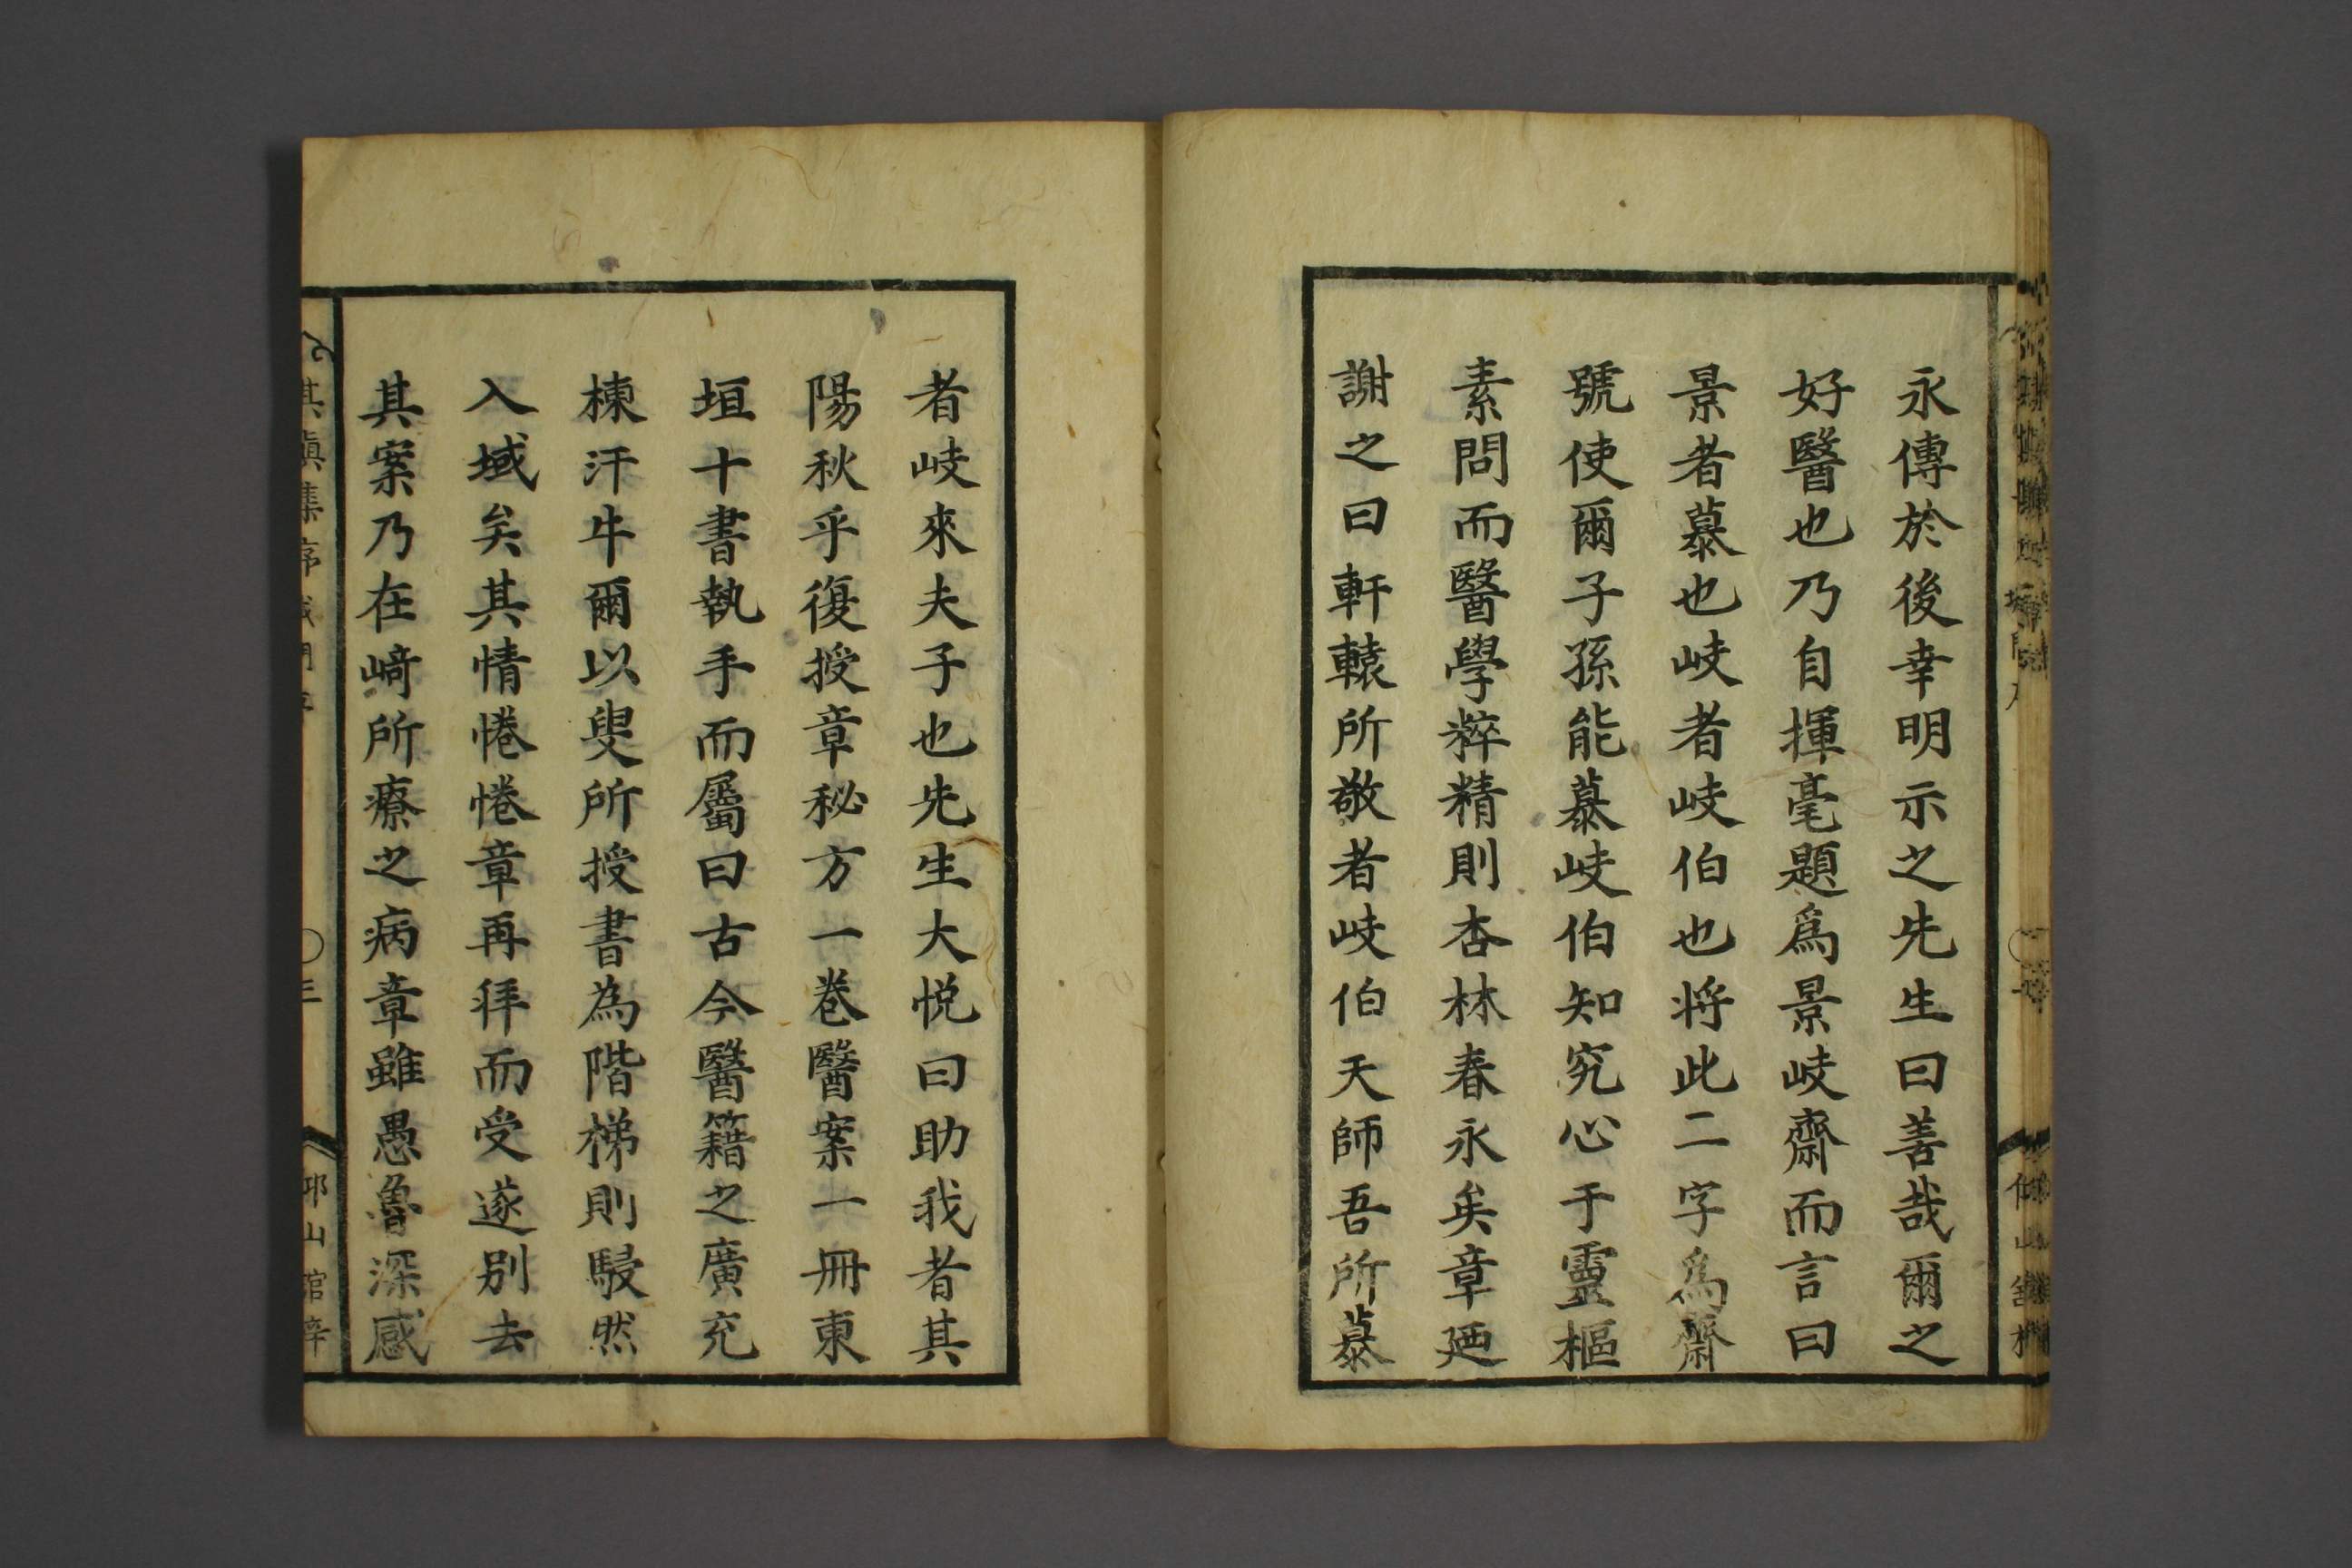 永傳於後幸明示之先生曰善哉爾之
好醫也乃自揮毫題爲景岐齋而言曰
景者慕也岐者岐伯也将此二字為齋
號使爾子孫能慕岐伯知究心于靈樞
素問而醫學粹精則杏林春永矣章廼
謝之曰軒轅所敬者岐伯天師吾所慕
者岐來夫子也先生大悦曰助我者其
陽秋乎復授章秘方一卷醫案一冊東
垣十書執手而屬曰古今醫籍之廣充
棟汗牛爾以叟所授書為階梯則駸然
入域矣其情惓惓章再拜而受遂別去
其案乃在﨑所療之病章雖愚魯深感